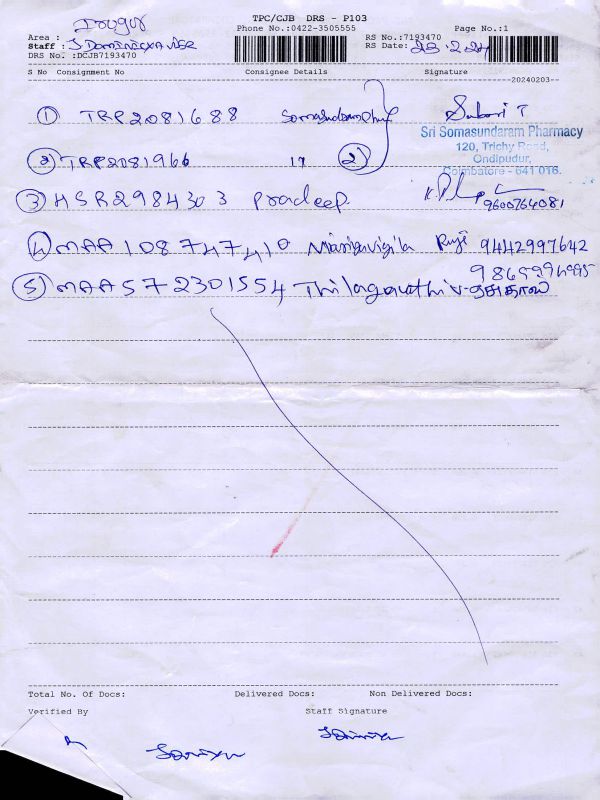 TPC/CJB DRS - P103
Area : Irugur
Phone No.:0422-3505555
Page No.:1
Staff : J DOMINICXAVIER
RS No.:7193470
DRS No. :DCJB7193470
RS Date: 22.2.24
S No Consignment No Consignee Details Signature
20240203
① TRP2081688 Somasundaram
Sri Somasundaram Pharmacy
120, Trichy Road,
Ondipudur,
Coimbatore - 641 016.
② TRP2081966 11 ②
③ HSR2984303 Pradeep 9600764081
④ MAA108747410 9442997642
⑤ MAA572301554 Thilagavathi
Total No. Of Docs: Delivered Docs: Non Delivered Docs:
Verified By Staff Signature